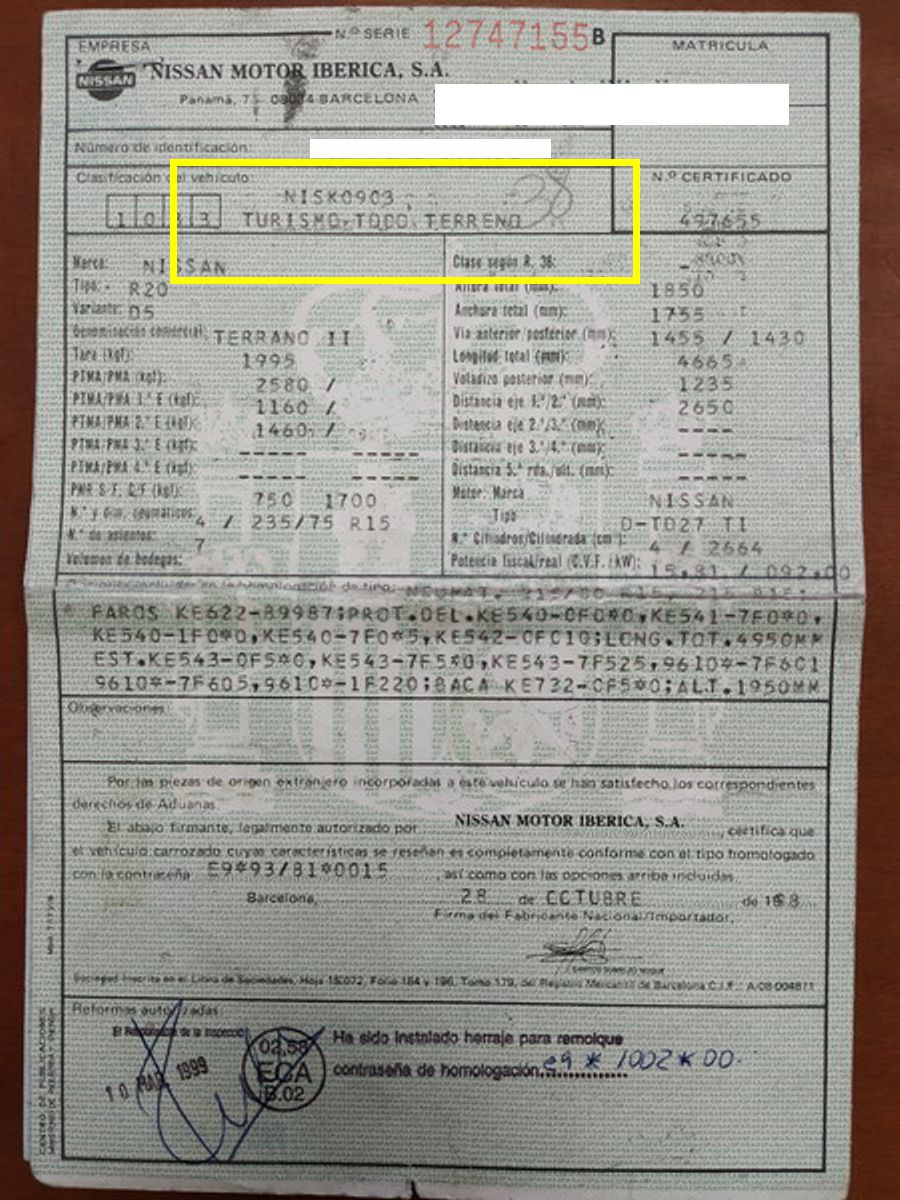 N.º SERIE 12747155 B
EMPRESA
MATRICULA
NISSAN NISSAN MOTOR IBERICA, S.A.
Panamá, 7 08034 BARCELONA
Número de identificación:
Clasificación del vehículo: NISK0903
N.º CERTIFICADO
1033 TURISMO.TODO TERRENO
497655
Marca: NISSAN
Clase según R. 36: -
Tipo: R20
Altura total (mm): 1850
Variante: D5
Anchura total (mm): 1755
Denominación comercial: TERRANO II
Via anterior/posterior (mm): 1455 / 1430
Tara (kgf): 1995
Longitud total (mm): 4665
PTMA/PMA (kgf): 2580 /
Voladizo posterior (mm): 1235
PTMA/PMA 1.º E (kgf): 1160 /
Distancia eje 1.º/2.º (mm): 2650
PTMA/PMA 2.º E (kgf): 1460 /
Distancia eje 2.º/3.º (mm): ----
PTMA/PMA 3.º E (kgf): ----- -----
Distancia eje 3.º/4.º (mm): -----
PTMA/PMA 4.º E (kgf): ----- -----
Distancia 5.ª rda./ult. (mm): -----
PMR S/F, C/F (kgf): 750 1700
Motor: Marca NISSAN
N.º y dim. neumáticos: 4 / 235/75 R15
Tipo D-TD27 TI
N.º de asientos: 7
N.º Cilindros/Cilindrada (cm³): 4 / 2664
Volumen de bodegas:
Potencia fiscal/real (C.V.F./kW): 15,81 / 092,00
Opciones incluidas en la homologación de tipo: NEUMAT.
FAROS KE622-89987;PROT.DEL.KE540-0F0*0,KE541-7F0*0,
KE540-1F0*0,KE540-7F0*5,KE542-0F010;LONG.TOT.4950MM
EST.KE543-0F5*0,KE543-7F5*0,KE543-7F525,9610*-7F601
9610*-7F605,9610*-1F220;BACA KE732-0F5*0;ALT.1950MM
Observaciones:
Por las piezas de origen extranjero incorporadas a este vehículo se han satisfecho los correspondientes
derechos de Aduanas.
El abajo firmante, legalmente autorizado por NISSAN MOTOR IBERICA, S.A. , certifica que
el vehículo carrozado cuyas características se reseñan es completamente conforme con el tipo homologado
con la contraseña E9*93/81*0015 , así como con las opciones arriba incluidas.
Barcelona, 28 de OCTUBRE de 1998
Firma del Fabricante Nacional/Importador,
Sociedad Inscrita en el Libro de Sociedades, Hoja 15.072, Folio 184 y 196, Tomo 179, del Registro Mercantil de Barcelona C.I.F. A-08-004871
Reformas autorizadas:
El Responsable de la Inspección
Ha sido instalado herraje para remolque
contraseña de homologación e9 * 1002 * 00
10 1999
02,58
ECA
B.02
CENTRO DE PUBLICACIONES